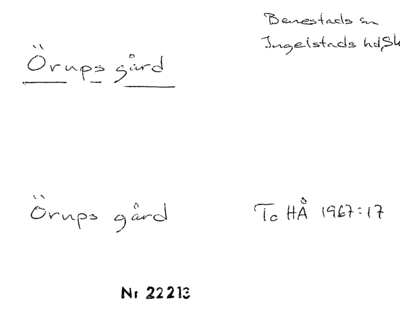 Benestads sn
Ingelstads hd, Sk
Örups gård
Örups gård
To HÅ 1967:17
Nr 22213